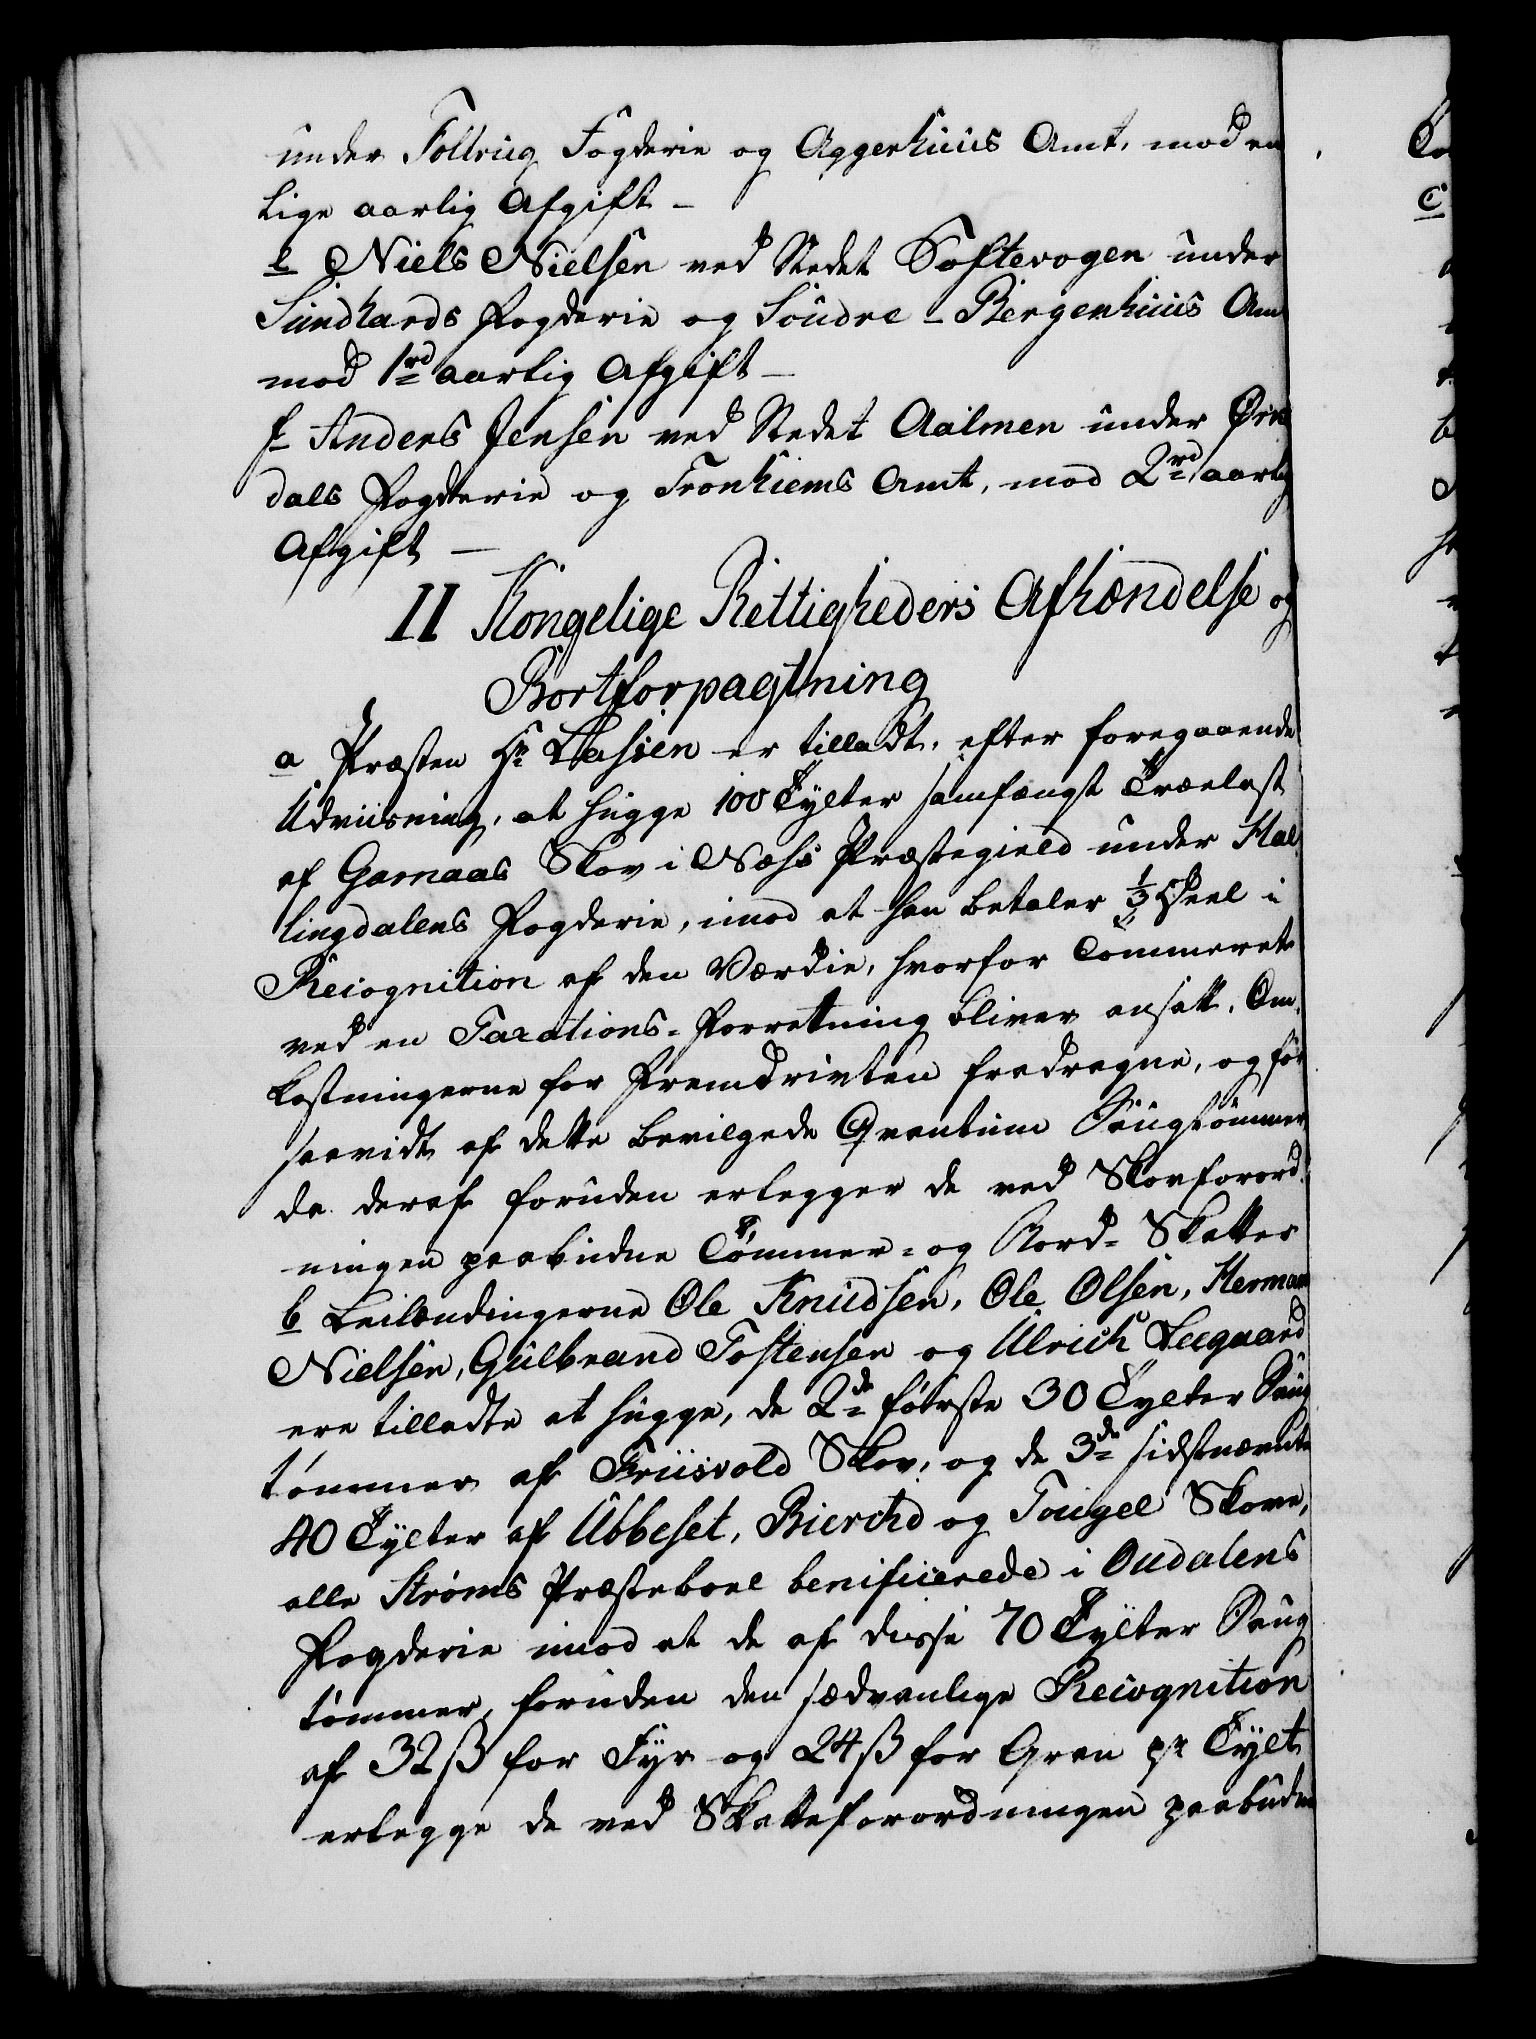 under Folloug Fogderie og Aggerhuus Amt, mod en
lige aarlig Afgift –
e Niels Nielsen ved Stedet Softevogen under
Sundhards Fogderie og Søndre-Bergenhuus Am
mod 1rd aarlig Afgift –
f Anders Jensen ved Stedet Aalmen under Ørke
dals Fogderie og Tronhiems Amt, mod 2rd aarlig
Afgift –
II Kongelige Rettigheders Afhændelse og
Bortforpagtning
a Præsten Hr Lassen er tilladt, efter foregaaende
Udviisning, at hugge 100 Tylter samfængt Trælast
af Garnaas Skov i Næss Præstegield under Hal
lingdalens Fogderie, imod at han betaler 1/3 Deel i
Recognition af den Værdie, hvorfor Tømmeret
ved en Taxations-Forretning bliver ansatt, Om-
kostningerne for Fremdrivten fradragne, og for
saavidt af dette bevilgede Qvantum Saugtømmer
da deraf foruden erlegger de ved Skovforord-
ningen paabudne Tømmer- og Bord-Skatter
b Leilændingerne Ole Knudsen, Ole Olsen, Herman
Nielsen, Gulbrand Tostensen og Ulrich Leegaard
ere tilladte at hugge, de 2de første 30 Tylter Saug
tømmer af Friisvold Skov, og de 3de sidstnævnte
40 Tylter af Ubbeset, Bierchd og Tougel Skove,
alle Strøms Præsteboel benificerede i Oudalens
Fogderie imod at de af disse 70 Tylter Saug
tømmer, foruden den sædvanlige Recognition
af 32 ß for Fyr og 24 ß for Gran pr Tylt
erlegge de ved Skatteforordningen paabudne
Co
C